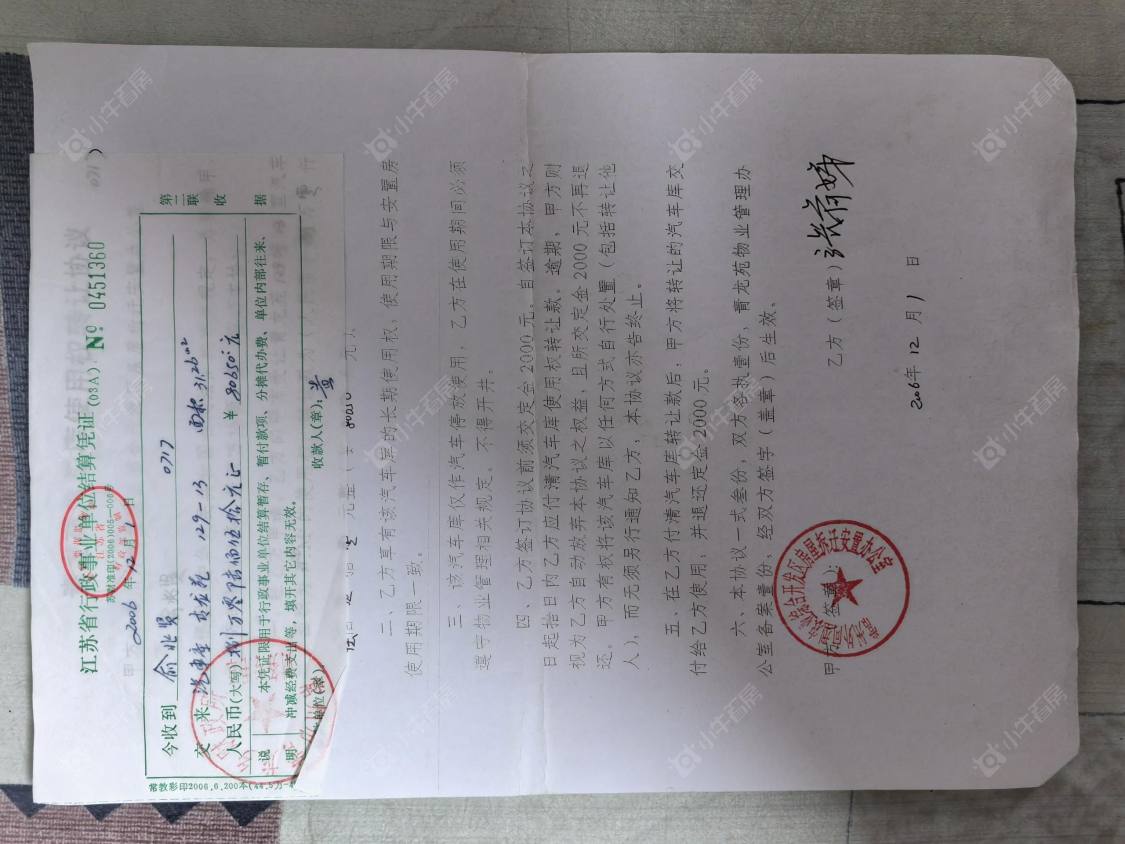 江苏省行政事业单位结算凭证(03A) № 0451360
2006年12月1日
今收到 俞业贤 0717
交来 汽车库 129-13 面积31.26m²
人民币(大写)捌万零陆佰伍拾元正 ¥ 80650.元
说明 本凭证限用于行政事业单位结算暂存、暂付款项、分摊代办费、单位内部往来、
冲减经费支出等，填开其它内容无效。
收款人(章):黄
第二联 收据
二、乙方享有该汽车库的长期使用权，使用期限与安置房
使用期限一致。
三、该汽车库仅作汽车停放使用，乙方在使用期间必须
遵守物业管理相关规定。不得开井。
四、乙方签订协议前须交定金2000元。自签订本协议之
日起拾日内乙方应付清汽车库使用权转让款。逾期，甲方则
视为乙方自动放弃本协议之权益，且所交定金2000元不再退
还。甲方有权将该汽车库以任何方式自行处置（包括转让他
人），而无须另行通知乙方，本协议亦告终止。
五、在乙方付清汽车库转让款后，甲方将转让的汽车库交
付给乙方使用，并退还定金2000元。
六、本协议一式叁份，双方各执壹份，青龙苑物业管理办
公室备案壹份，经双方签字（盖章）后生效。
甲方（签章） 乙方（签章）
房屋拆迁安置办公室
2006年12月1日
小牛看房